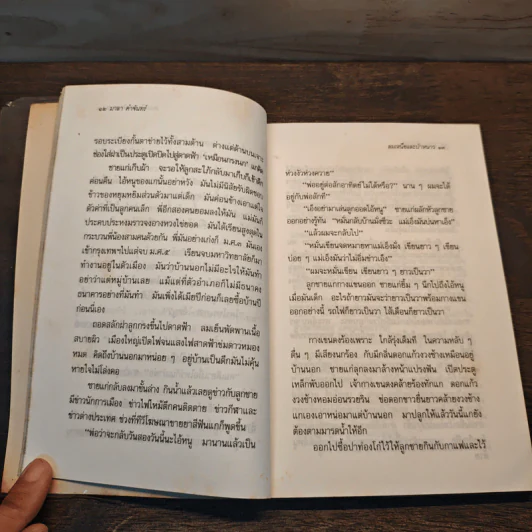 ๑๒ มาลา คำจันทร์
รอบระเบียงกั้นตาข่ายไว้ทั้งสามด้าน ต่างแต่ด้านบน
ช่องใส่ฝาเป็นประตูเปิดปิดไปสู่ดาดฟ้า "เหมือนกรงนก"
ชายแก่เก็บผ้า จะรอให้ลูกสะใภ้กลับมาเก็บก็เข้า
ค่อนคืน ไอ้หนูของแกนั้นอย่าหวัง มันไม่มีนิสัยรับผิดชอบ
ข้าวของหยุมหยิมส่วนตัวมาแต่เด็ก มันค่อนข้างเอาแต่ใจ
ตัวค่าที่เป็นลูกคนเล็ก พี่อีกสองคนยอมลงให้มัน แม่มันก็
ประคบประหงมราวจงอางหวงไข่ยอด มันได้เรียนสูงสุดใน
กระบวนพี่น้องสามคนด้วยกัน พี่มันอย่างเก่งก็ ม.ศ.๓ มันเอง
เข้ากรุงเทพฯไปแต่จบ ม.ศ.๕ เรียนจบมหาวิทยาลัยก็มา
ทำงานอยู่ในตัวเมือง มันว่าบ้านนอกไม่มีอะไรให้มันทำ
อย่าว่าแต่หมู่บ้านเลย แม้แต่ที่ตัวอำเภอก็ไม่มีธนาคง
ธนาคารอย่างที่มันทำ มันเพิ่งได้เมียปีก่อนก็เลยซื้อบ้านปี
ก่อนนี้เอง
ถอดสลักฝาลูกกรงขึ้นไปสู่ดาดฟ้า ลมเย็นพัดพานเนื้อ
สบายผิว เมืองใหญ่เปิดไฟจนแสงไฟสางฟ้าข่มดาวหมอง
หมด คิดถึงบ้านนอกมาหน่อย ๆ อยู่บ้านเป็นตึกมันไม่คุ้น
หายใจไม่โล่งคอ
ชายแก่กลับลงมาชั้นล่าง กินน้ำแล้วเลยดูข่าวกับลูกชาย
มีข่าวนักการเมือง ข่าวไฟไหม้ตึกคนติดตาย ข่าวกีฬาและ
ข่าวต่างประเทศ ช่วงที่ทีวีโฆษณาขายยาสีฟันแกก็พูดขึ้น
"พ่อว่าจะกลับวันสองวันนี้นะไอ้หนู มานานแล้วเป็น
ห่วงวัวห่วงควาย"
"พ่ออยู่ต่อสักอาทิตย์ไม่ได้หรือ? นาน ๆ แมจะได้
อยู่กับพ่อสักที"
"เอ็งอย่ามาเล่นลูกออดไอ้หนู" ชายแก่ผลักหัวลูกชาย
ออกอย่างรู้ทัน "หมั่นกลับบ้านมั่งซีวะ แม่เอ็งมันบ่นหาเอ็ง"
"แล้วผมจะกลับไป"
"หมั่นเขียนจดหมายหาแม่เอ็งมั่ง เขียนยาว ๆ เขียน
บ่อย ๆ แม่เอ็งมันว่าไม่อิ่มข่าวเอ็ง"
"ผมจะหมั่นเขียน เขียนยาว ๆ ยาวเป็นวา"
ลูกชายกางแขนออก ชายแก่ยิ้ม ๆ นึกไปถึงไอ้หนู
เมื่อมันเด็ก อะไรถ้ายาวมันจะว่ายาวเป็นวาพร้อมกางแขน
ออกอย่างนี้ รถไฟก็ยาวเป็นวา ไส้เดือนก็ยาวเป็นวา
กางเขนดงร้องเพราะ ใกล้รุ่งเต็มที ในความหลับ ๆ
ตื่น ๆ มีเสียงนกร้อง กับมีกลิ่นดอกแก้วงวงช้างเหมือนอยู่
บ้านนอก ชายแก่ลุกลงมาล้างหน้าแปรงฟัน เปิดประตู
เหล็กพับออกไป เจ้ากางเขนดงคล้ายร้องทักแก ดอกแก้ว
งวงช้างหอมอ่อนรวยริน ช่อดอกยาวยื่นยาวคล้ายงวงช้าง
แกเองเอาหน่อมาแต่บ้านนอก มาปลูกให้แล้ววันนี้แกยัง
ต้องตามมารดน้ำให้อีก
ออกไปซื้อปาท่องโก๋ไว้ให้ลูกชายกินกับกาแฟและไว้